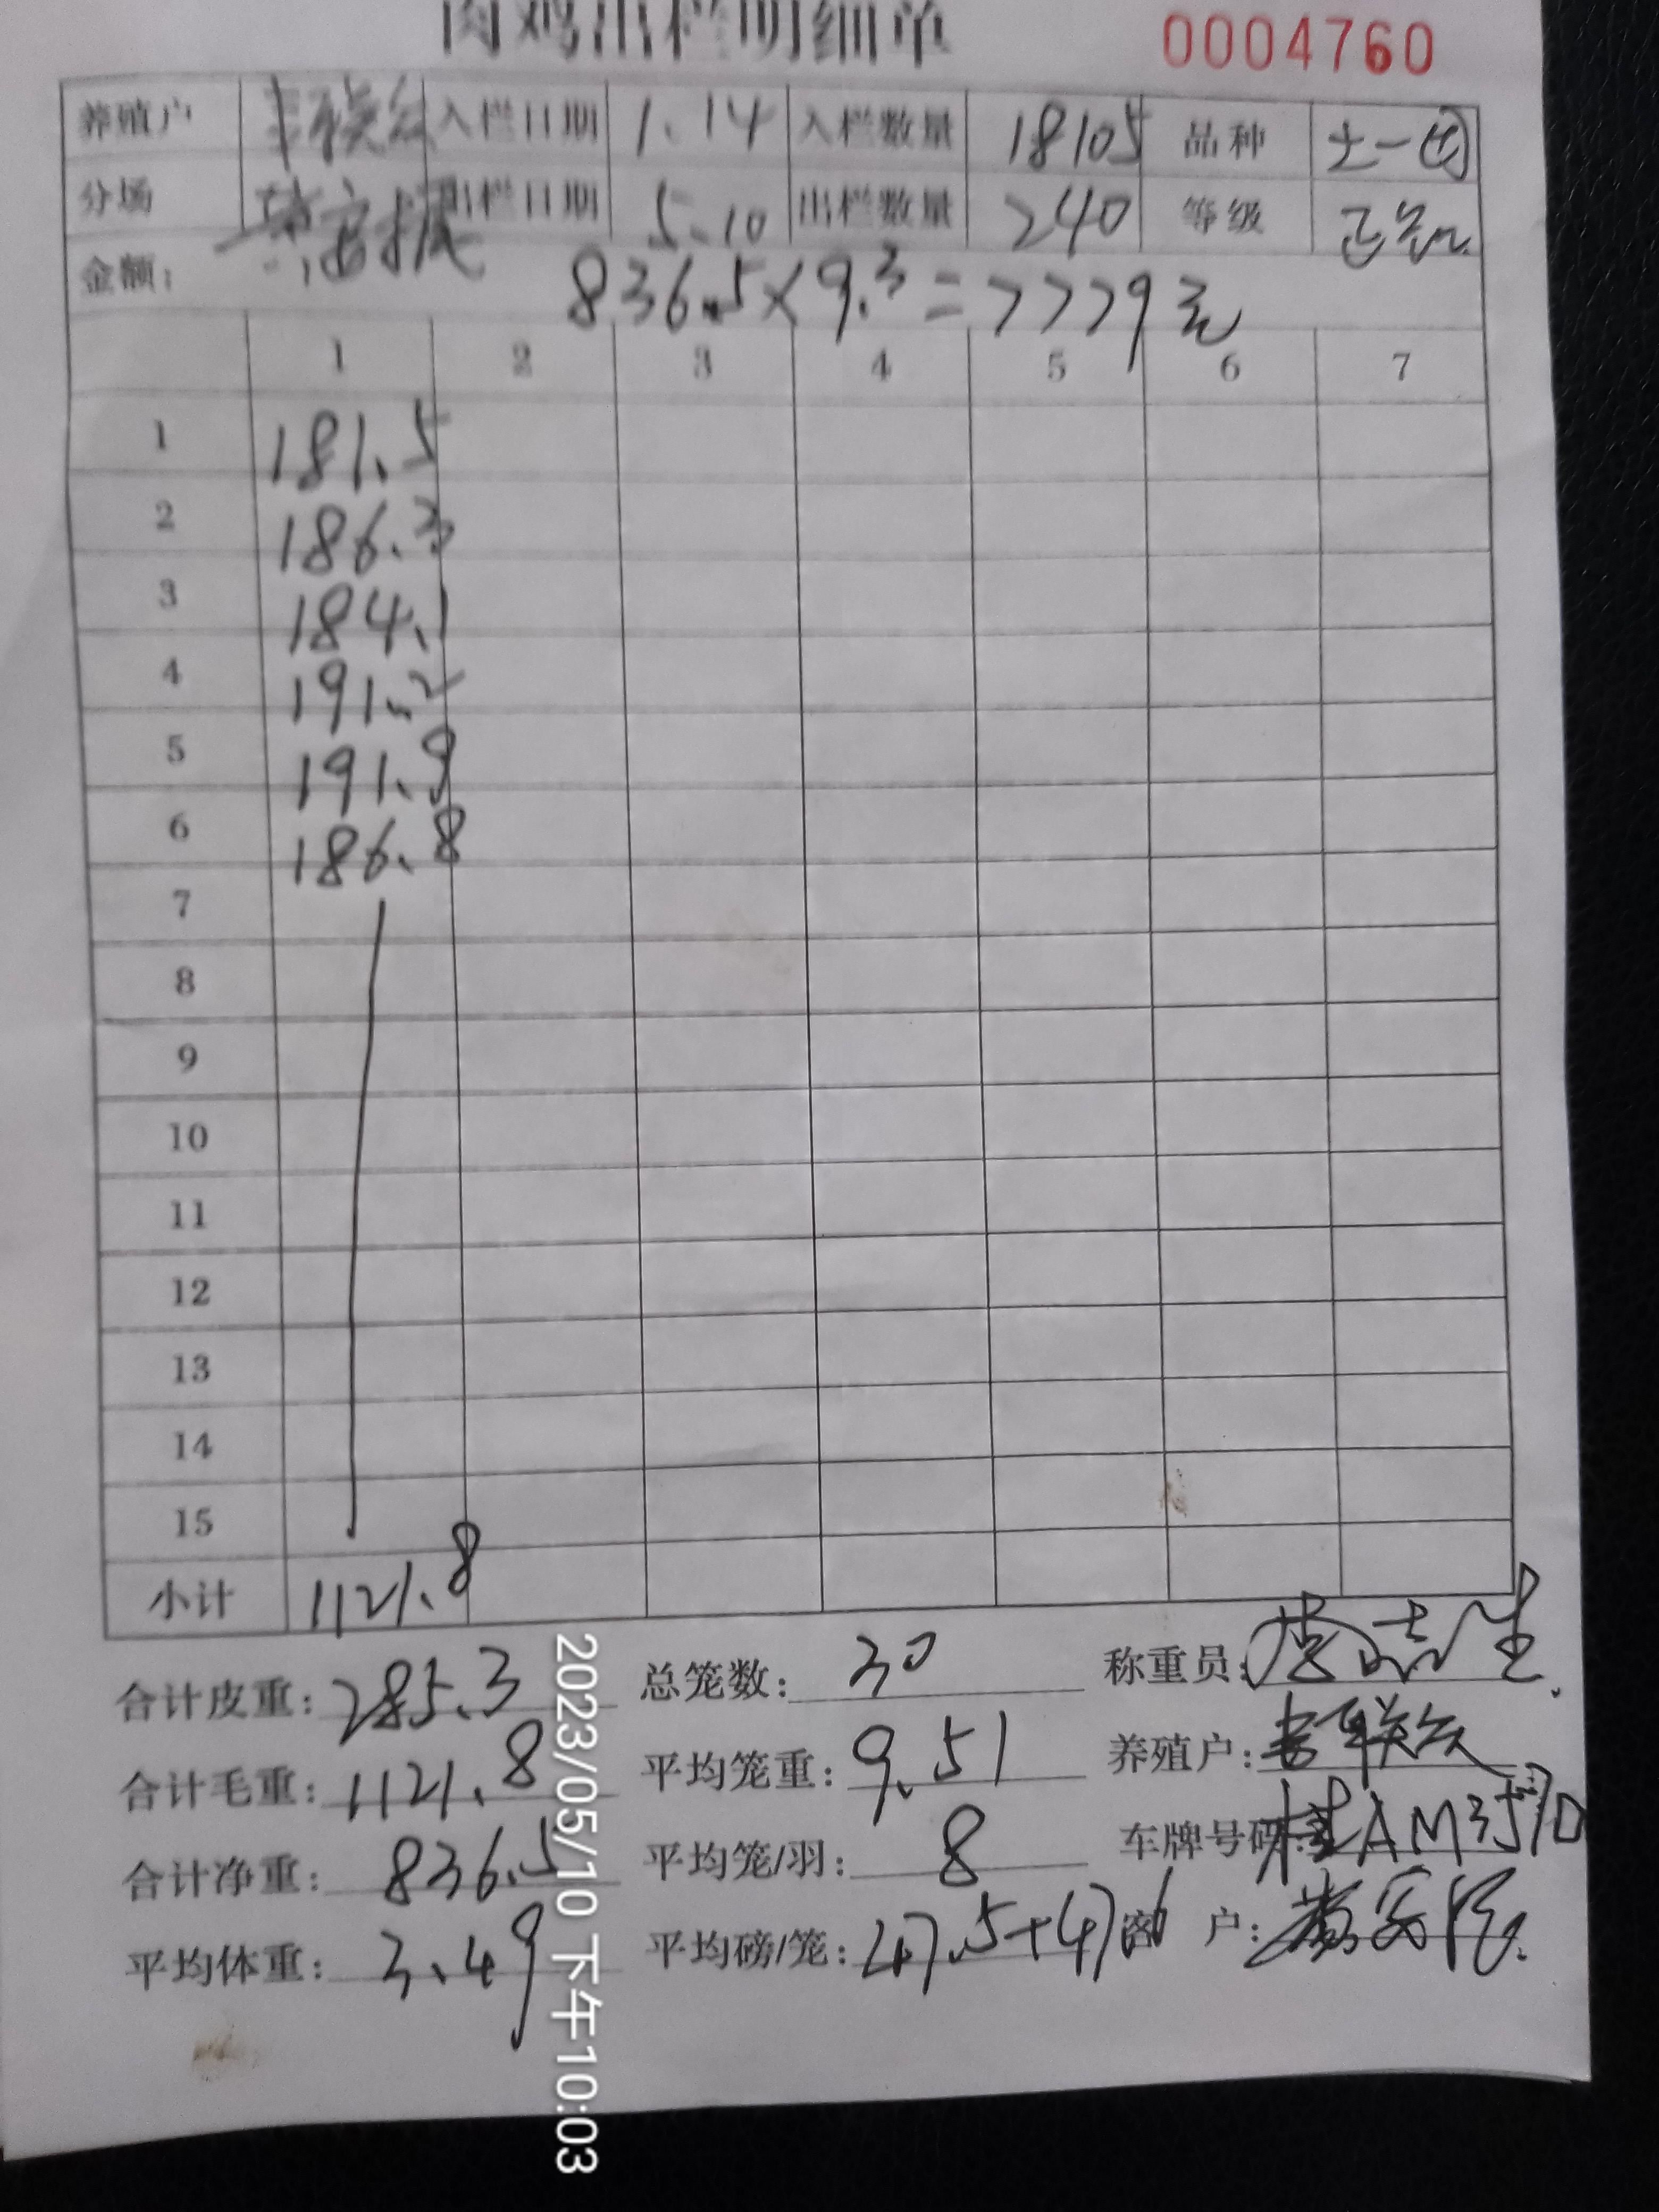 肉鸡出栏明细单 0004760
养殖户 联众 入栏日期 1.14 入栏数量 18105 品种 土一
分场 出栏日期 5.10 出栏数量 240 等级 正常
金额: 836.5×9.3=7779元
1 2 3 4 5 6 7
1 181.5
2 186.3
3 184.1
4 191.2
5 191.9
6 186.8
7
8
9
10
11
12
13
14
15
小计 1121.8
合计皮重: 285.3 总笼数: 30 称重员: 李志生
合计毛重: 1121.8 平均笼重: 9.51 养殖户: 联众
合计净重: 836.5 平均笼/羽: 8 车牌号码: 桂AM3570
平均体重: 3.49 平均磅/笼: 47.5+47.6 客户:
2023/05/10 下午10:03